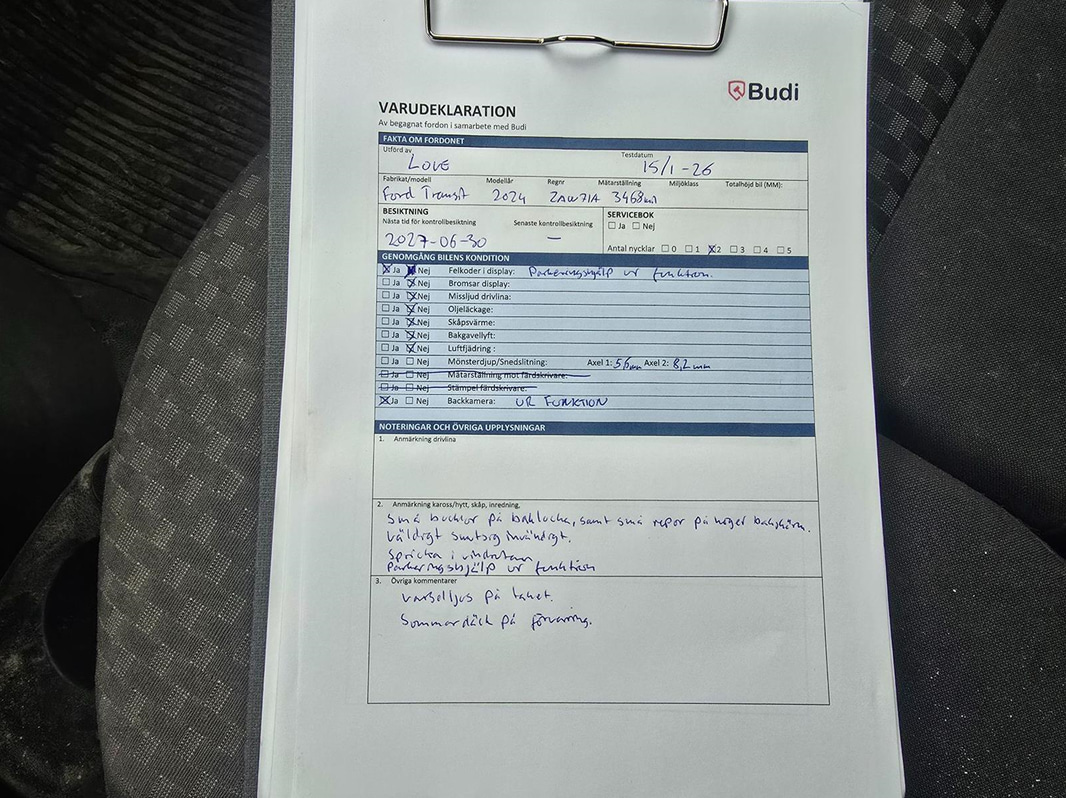 Budi
VARUDEKLARATION
Av begagnat fordon i samarbete med Budi
FAKTA OM FORDONET
Utförd av Testdatum
LOVE 15/1-26
Fabrikat/modell Modellår Regnr Mätarställning Miljöklass Totalhöjd bil (MM):
Ford Transit 2024 ZAW71A 3468mil
BESIKTNING SERVICEBOK
Nästa tid för kontrollbesiktning Senaste kontrollbesiktning ☐ Ja ☐ Nej
2027-06-30 —
Antal nycklar ☐ 0 ☐ 1 ☒ 2 ☐ 3 ☐ 4 ☐ 5
GENOMGÅNG BILENS KONDITION
☒ Ja ■ Nej Felkoder i display: Parkeringshjälp ur funktion.
☐ Ja ☒ Nej Bromsar display:
☐ Ja ☒ Nej Missljud drivlina:
☐ Ja ☒ Nej Oljeläckage:
☐ Ja ☒ Nej Skåpsvärme:
☐ Ja ☒ Nej Bakgavellyft:
☐ Ja ☒ Nej Luftfjädring :
☐ Ja ☐ Nej Mönsterdjup/Snedslitning: Axel 1: 5,6mm Axel 2: 8,2mm
☐ Ja ☐ Nej Mätarställning mot färdskrivare:
☐ Ja ☐ Nej Stämpel färdskrivare:
☒ Ja ☐ Nej Backkamera: UR FUNKTION
NOTERINGAR OCH ÖVRIGA UPPLYSNINGAR
1. Anmärkning drivlina
2. Anmärkning kaross/hytt, skåp, inredning,
Små bucklor på baklucka, samt små repor på höger bakskärm.
Väldigt smutsig invändigt.
Spricka i vindrutan
Parkeringshjälp ur funktion
3. Övriga kommentarer
Varselljus på taket.
Sommardäck på förvaring.